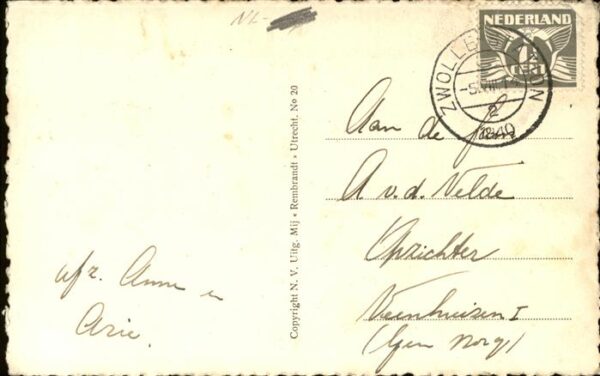 NL-
NEDERLAND
1½
CENT
ZWOLLE
1940
Aan de fam.
A v.d. Velde
Opzichter
Veenhuizen I
(Gem Norg)
afz. Anne en
Arie.
Copyright N. V. Uitg. Mij • Rembrandt • Utrecht. No 20